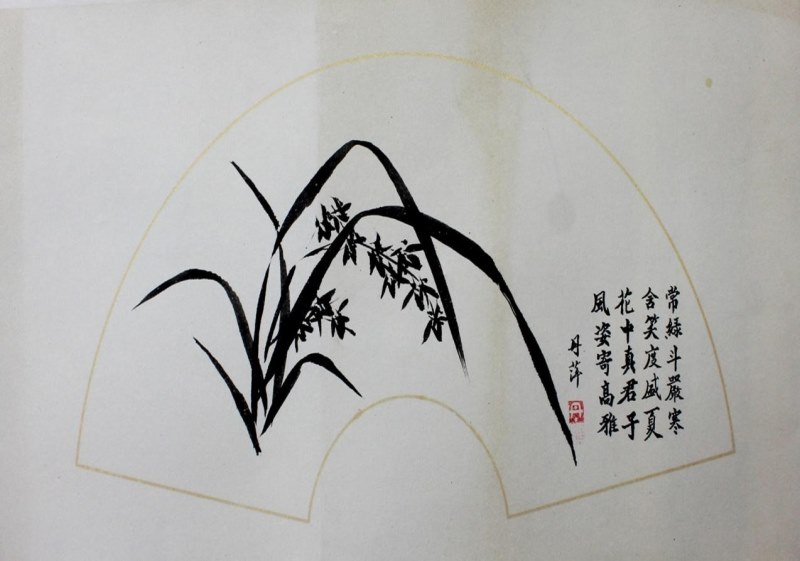 常緑斗嚴寒
含笑度盛夏
花中真君子
風姿寄高雅
丹萍